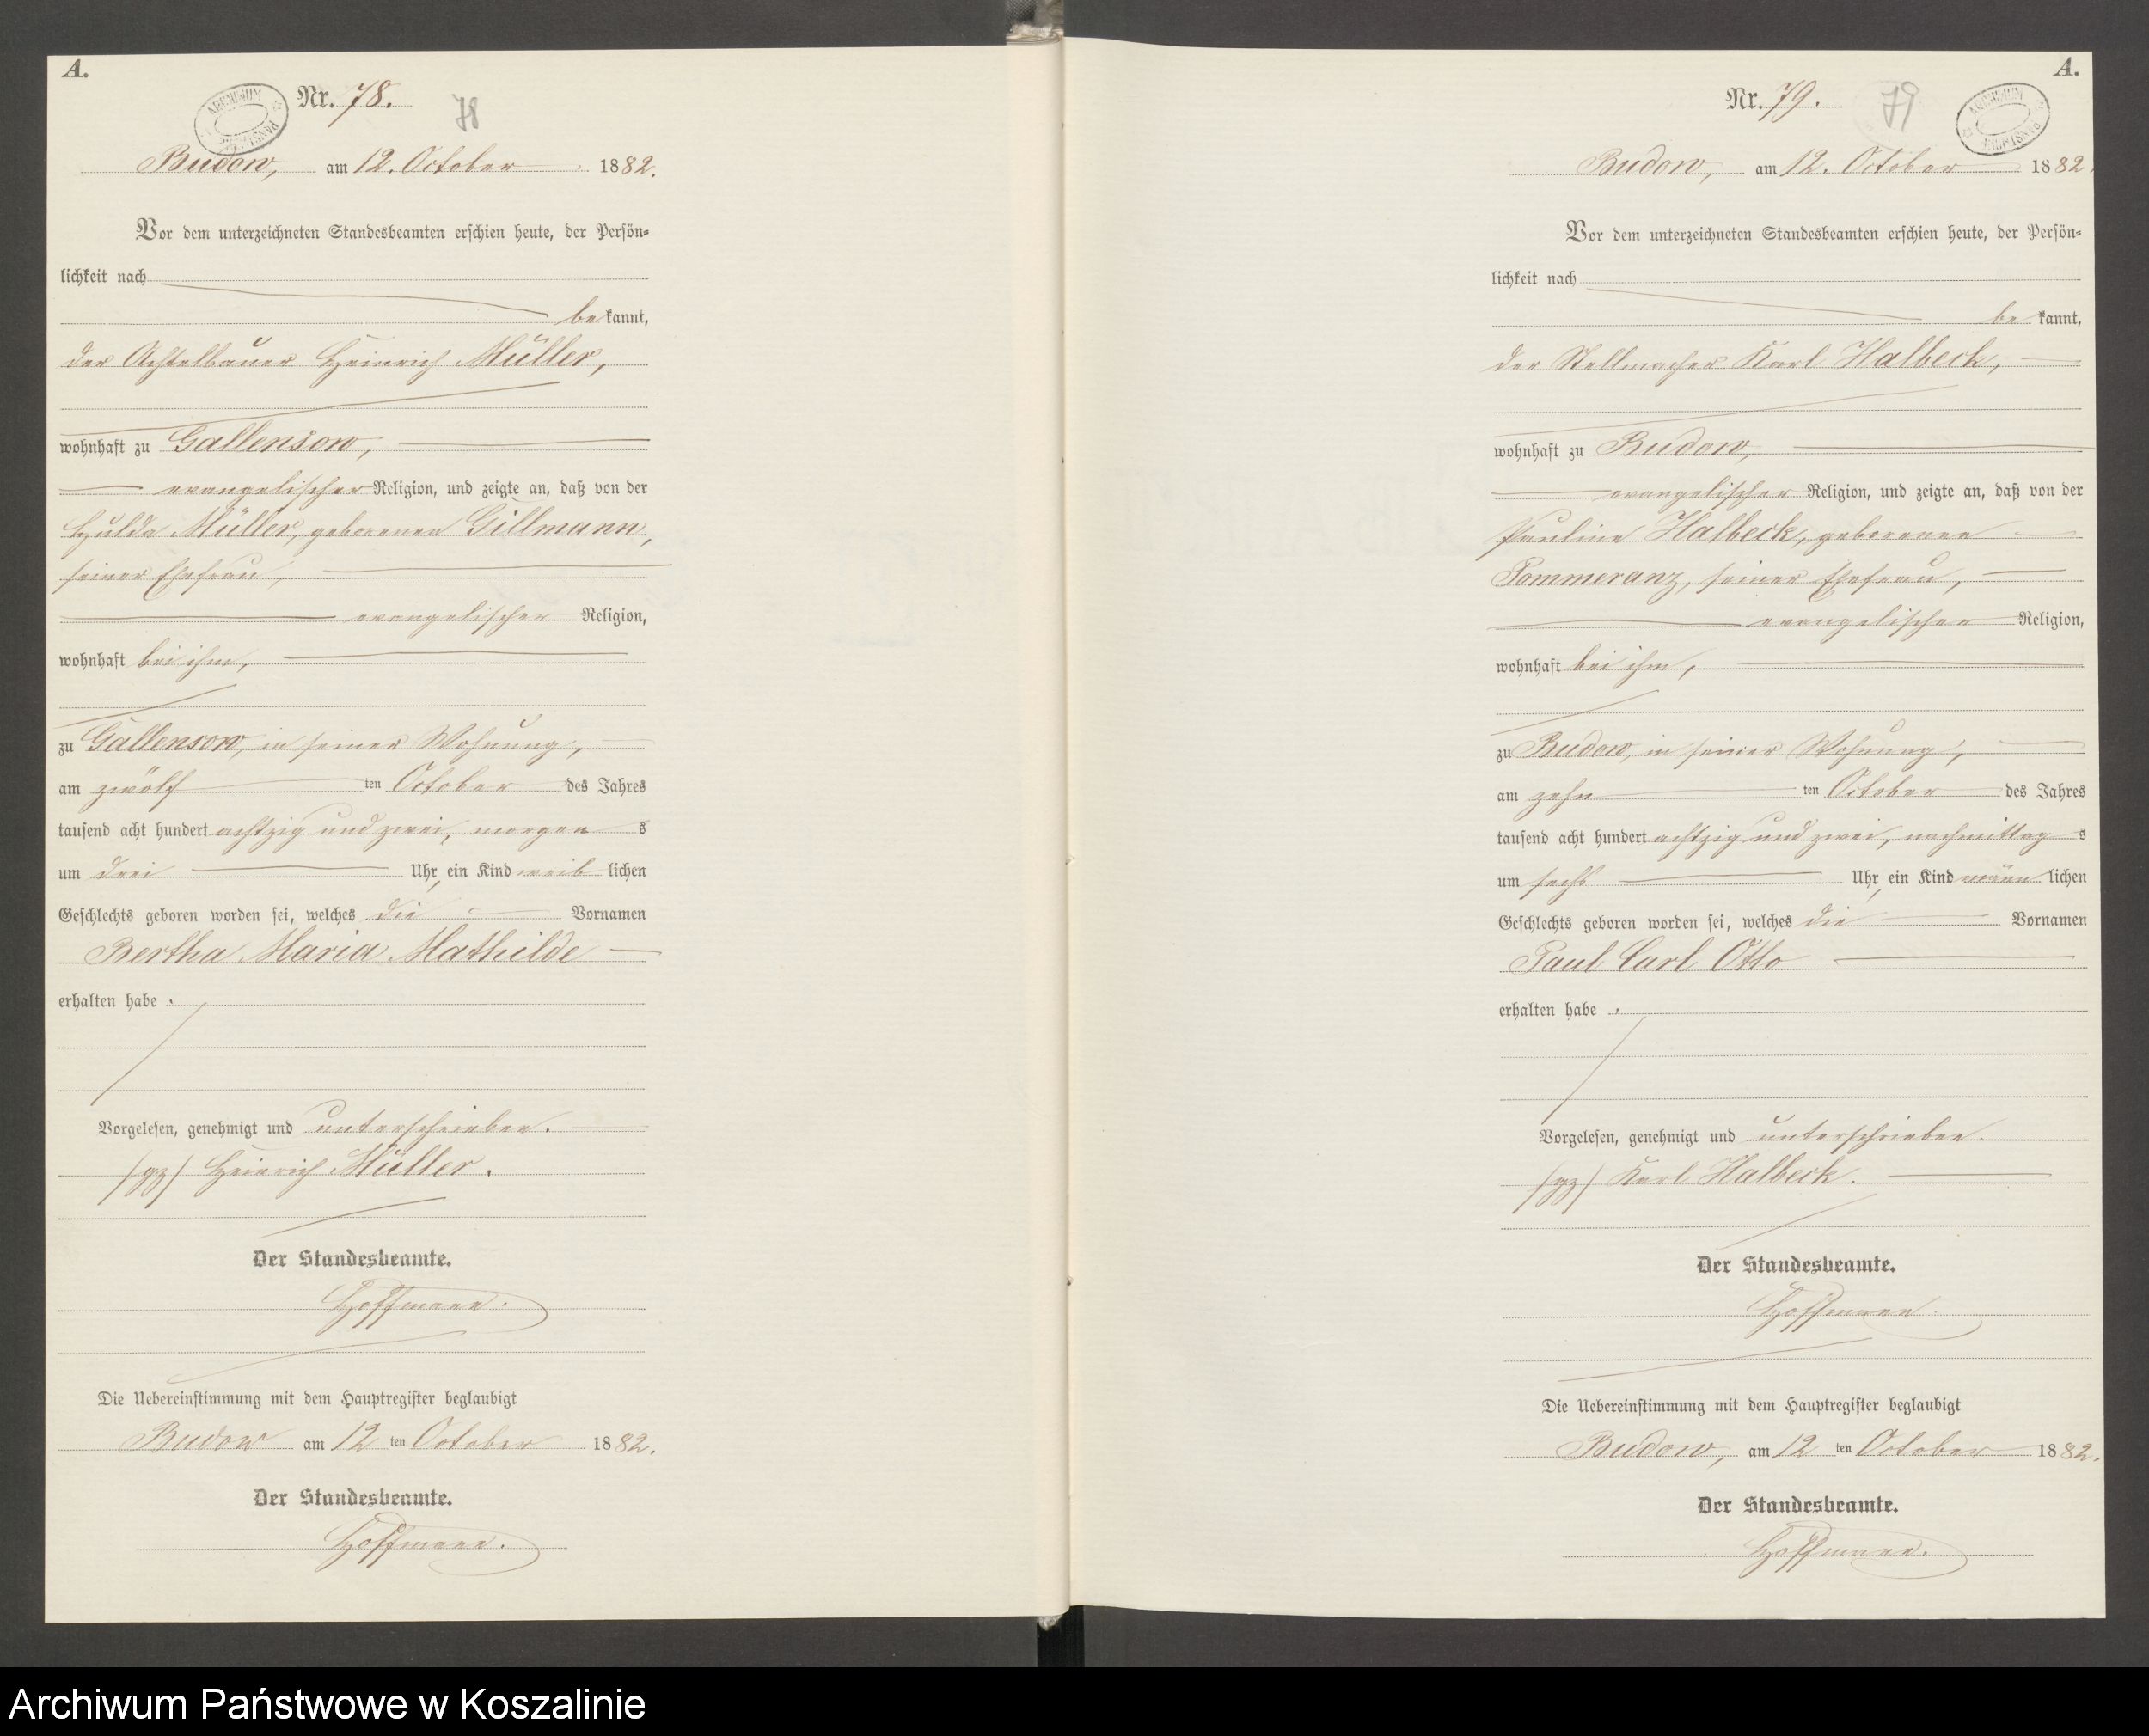 A.
Nr. 78.
78
ARCHIWUM
Budow, am 12. October 1882.
Vor dem unterzeichneten Standesbeamten erschien heute, der Persön-
lichkeit nach
bekannt,
der Achtelbauer Heinrich Müller,
wohnhaft zu Gallensow,
evangelischer Religion, und zeigte an, daß von der
Hulda Müller, geborenen Gillmann,
seiner Ehefrau,
evangelischer Religion,
wohnhaft bei ihm,
zu Gallensow, in seiner Wohnung,
am zwölf ten October des Jahres
tausend acht hundert achtzig und zwei, morgens
um drei Uhr, ein Kind weiblichen
Geschlechts geboren worden sei, welches die Vornamen
Bertha Maria Mathilde
erhalten habe.
Vorgelesen, genehmigt und unterschrieben.
(gz) Heinrich Müller.
Der Standesbeamte.
Hoffmann.
Die Uebereinstimmung mit dem Hauptregister beglaubigt
Budow am 12 ten October 1882.
Der Standesbeamte.
Hoffmann.
A.
Nr. 79.
79
ARCHIWUM
Budow, am 12. October 1882.
Vor dem unterzeichneten Standesbeamten erschien heute, der Persön-
lichkeit nach
bekannt,
der Stellmacher Karl Halbeck,
wohnhaft zu Budow,
evangelischer Religion, und zeigte an, daß von der
Pauline Halbeck, geborenen
Pommeranz, seiner Ehefrau,
evangelischer Religion,
wohnhaft bei ihm,
zu Budow, in seiner Wohnung,
am zehn ten October des Jahres
tausend acht hundert achtzig und zwei, nachmittags
um sechs Uhr, ein Kind männlichen
Geschlechts geboren worden sei, welches die Vornamen
Paul Carl Otto
erhalten habe.
Vorgelesen, genehmigt und unterschrieben.
(gz) Karl Halbeck.
Der Standesbeamte.
Hoffmann.
Die Uebereinstimmung mit dem Hauptregister beglaubigt
Budow, am 12 ten October 1882.
Der Standesbeamte.
Hoffmann.
Archiwum Państwowe w Koszalinie